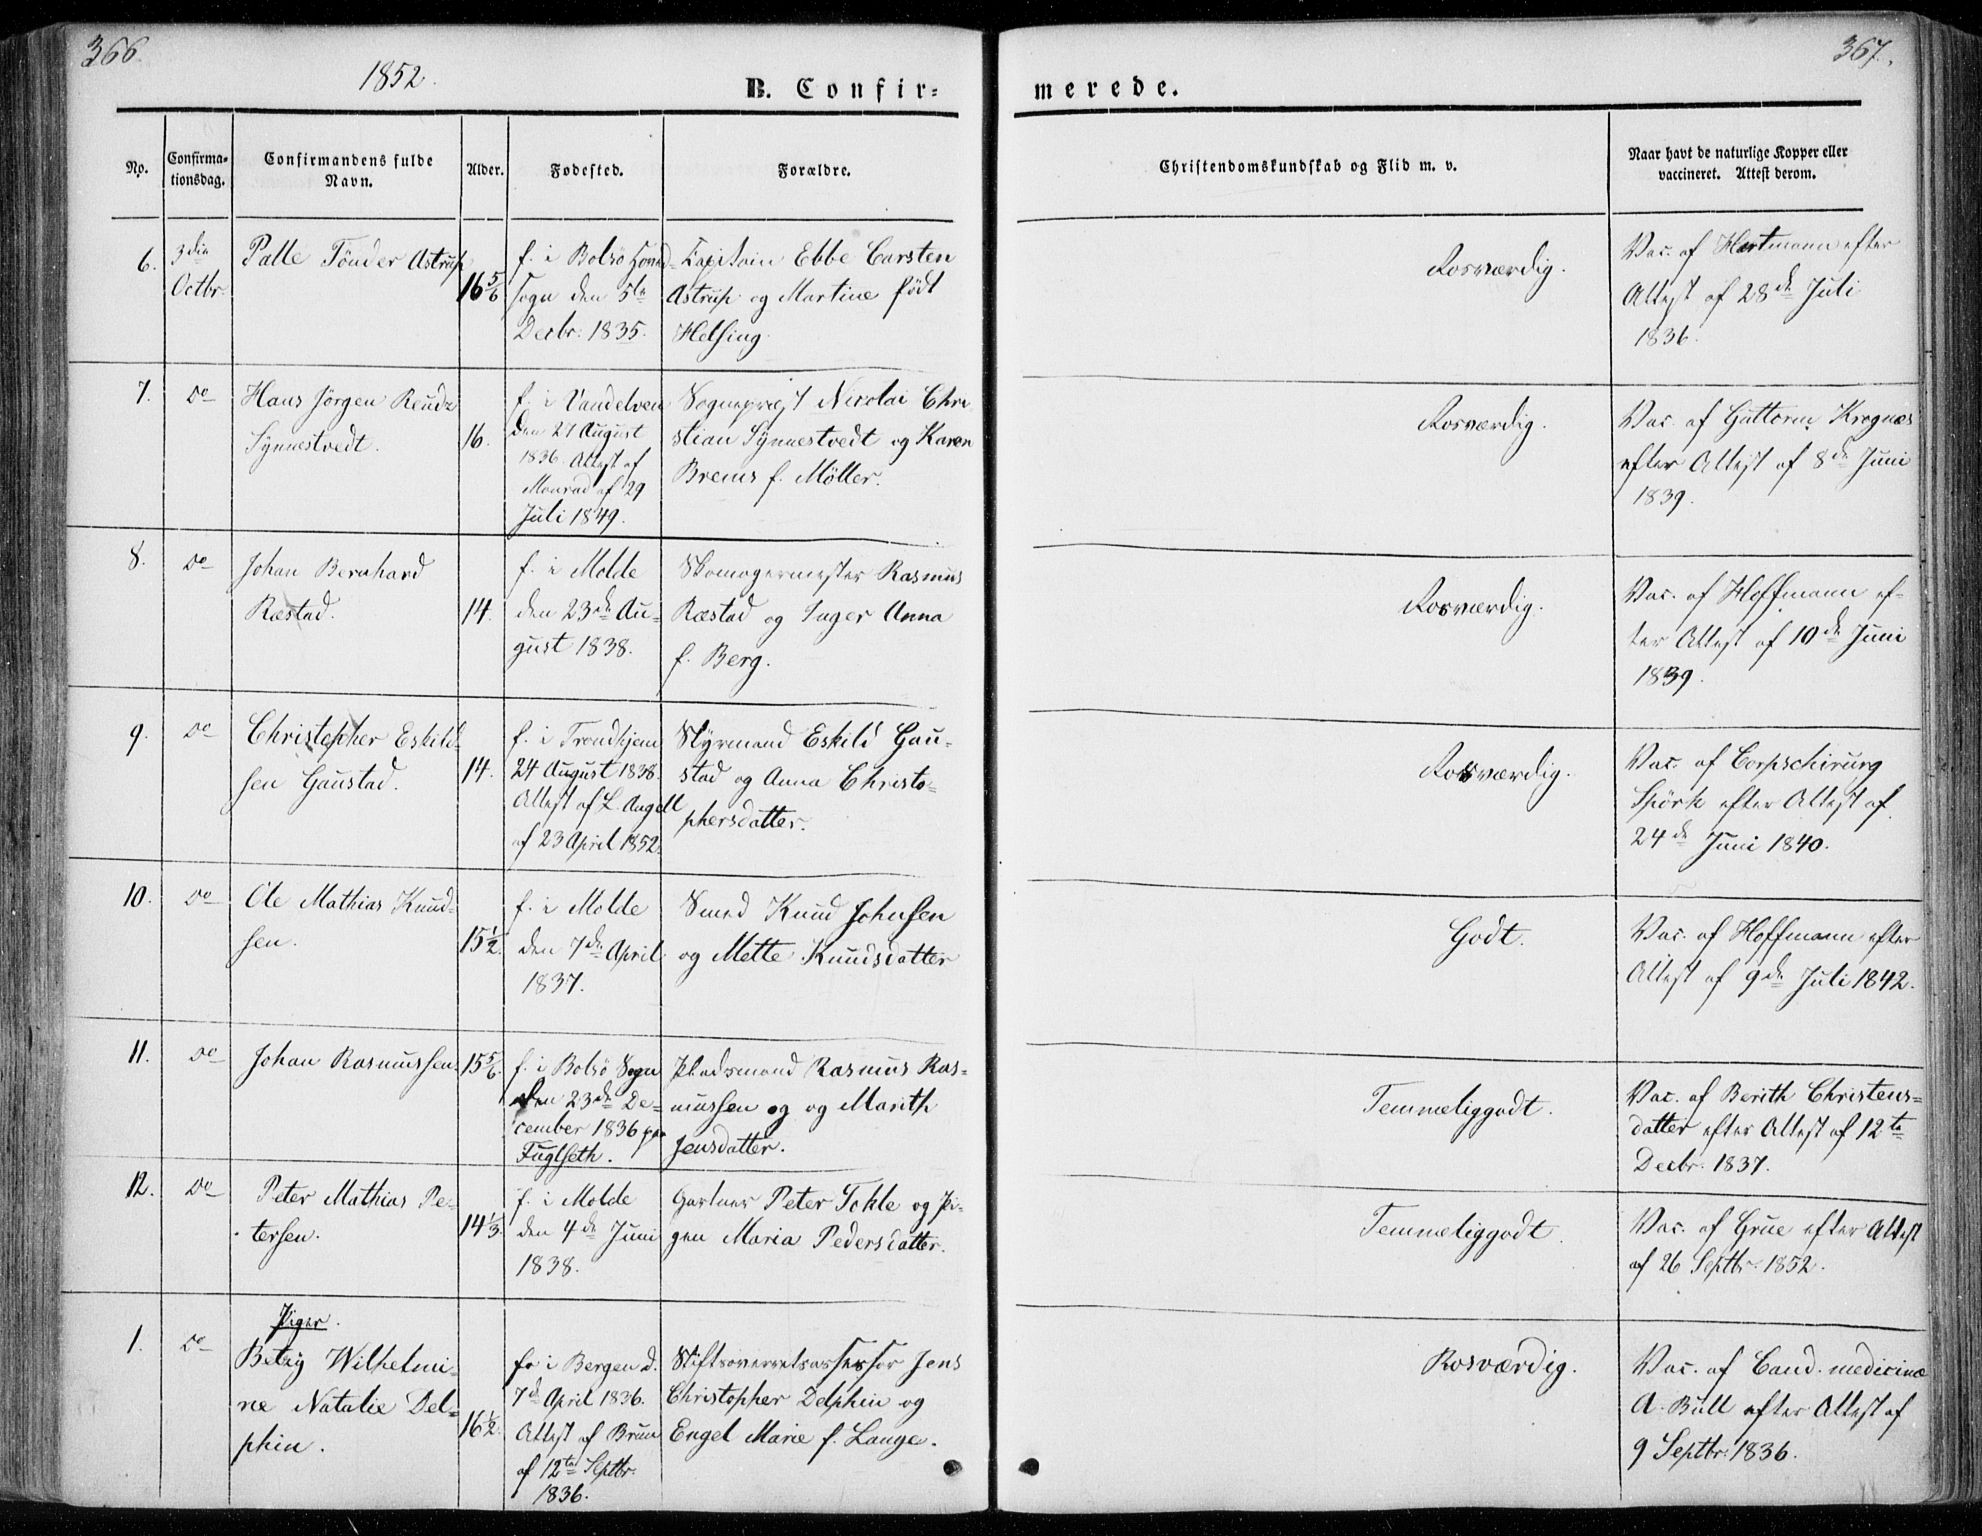 366.
1852.
B. Confir-
No.
Confirma-
tionsdag.
Confirmandens fulde
Navn.
Alder.
Fødested.
Forældre.
6.
3die
Octbr.
Palle Tönder Astrup
16 5/6
f. i Bolsö
Sogn den 5te
Decbr. 1835.
Capitain Ebbe Carsten
Astrup og Martine födt
Helsing.
7.
Do
Hans Jörgen
Synnestvedt.
16.
f. i Vandelven
den 27 August
1836. Attest af
Monrad af 29
Juli 1849.
Sognepræst Nicolai Chri-
stian Synnestvedt og Karen
Brems f. Möller.
8.
Do
Johan Bernhard
Ræstad.
14.
f. i Molde
den 23de Au-
gust 1838.
Skomagermester Rasmus
Ræstad og Inger Anna
f. Berg.
9.
Do
Christopher Eskild-
sen Gaustad.
14.
f. i Trondhjem
24 August 1838.
Attest af L. Angell
af 23 April 1852.
Styrmand Eskild Gau-
stad og Anna Christo-
phersdatter.
10.
Do
Ole Mathias Knud-
sen.
15 1/2
f. i Molde
den 7de April
1837.
Smed Knud Johnsen
og Mette Knudsdatter
11.
Do
Johan Rasmussen.
15 5/6
f. i Bolsö Sogn
den 23de De-
cember 1836 paa
Fuglseth.
Pladsmand Rasmus Ras-
mussen og og Marith
Jensdatter.
12.
Do
Peter Mathias Pe-
tersen.
14 1/3
f. i Molde
den 4de Juni
1838.
Gartner Peter Tokle og Pi-
gen Maria Pedersdatter.
Piger.
1.
Do
Betzy Wilhelmi-
ne Natalie Del-
phin.
16 1/2
fö i Bergen d.
7de April 1836.
Attest af Brun
af 12te Septbr.
1836.
Stiftsoverretsassessor Jens
Christopher Delphin og
Engel Marie f. Lange.
367.
merede.
Christendomskundskab og Flid m. v.
Naar havt de naturlige Kopper eller
vaccineret. Attest derom.
Rosværdig.
Vac. af Hartmann efter
Attest af 28de Juli
1836.
Rosværdig.
Vac. af Guttorm Krognæs
efter Attest af 8de Juni
1839.
Rosværdig.
Vac. af Hoffmann ef-
ter Attest af 10de Juni
1839.
Rosværdig.
Vac. af Corpschirurg
Spörk efter Attest af
24de Juni 1840.
Godt.
Vac. af Hoffmann efter
Attest af 9de Juli 1842.
Temmeliggodt.
Vac. af Berith Christens-
datter efter Attest af 12te
Decbr. 1837.
Temmeliggodt.
Vac. af Grue efter Attest
af 26 Septbr. 1852.
Rosværdig.
Vac. af Cand. medicinæ
A. Bull efter Attest af
9 Septbr. 1836.